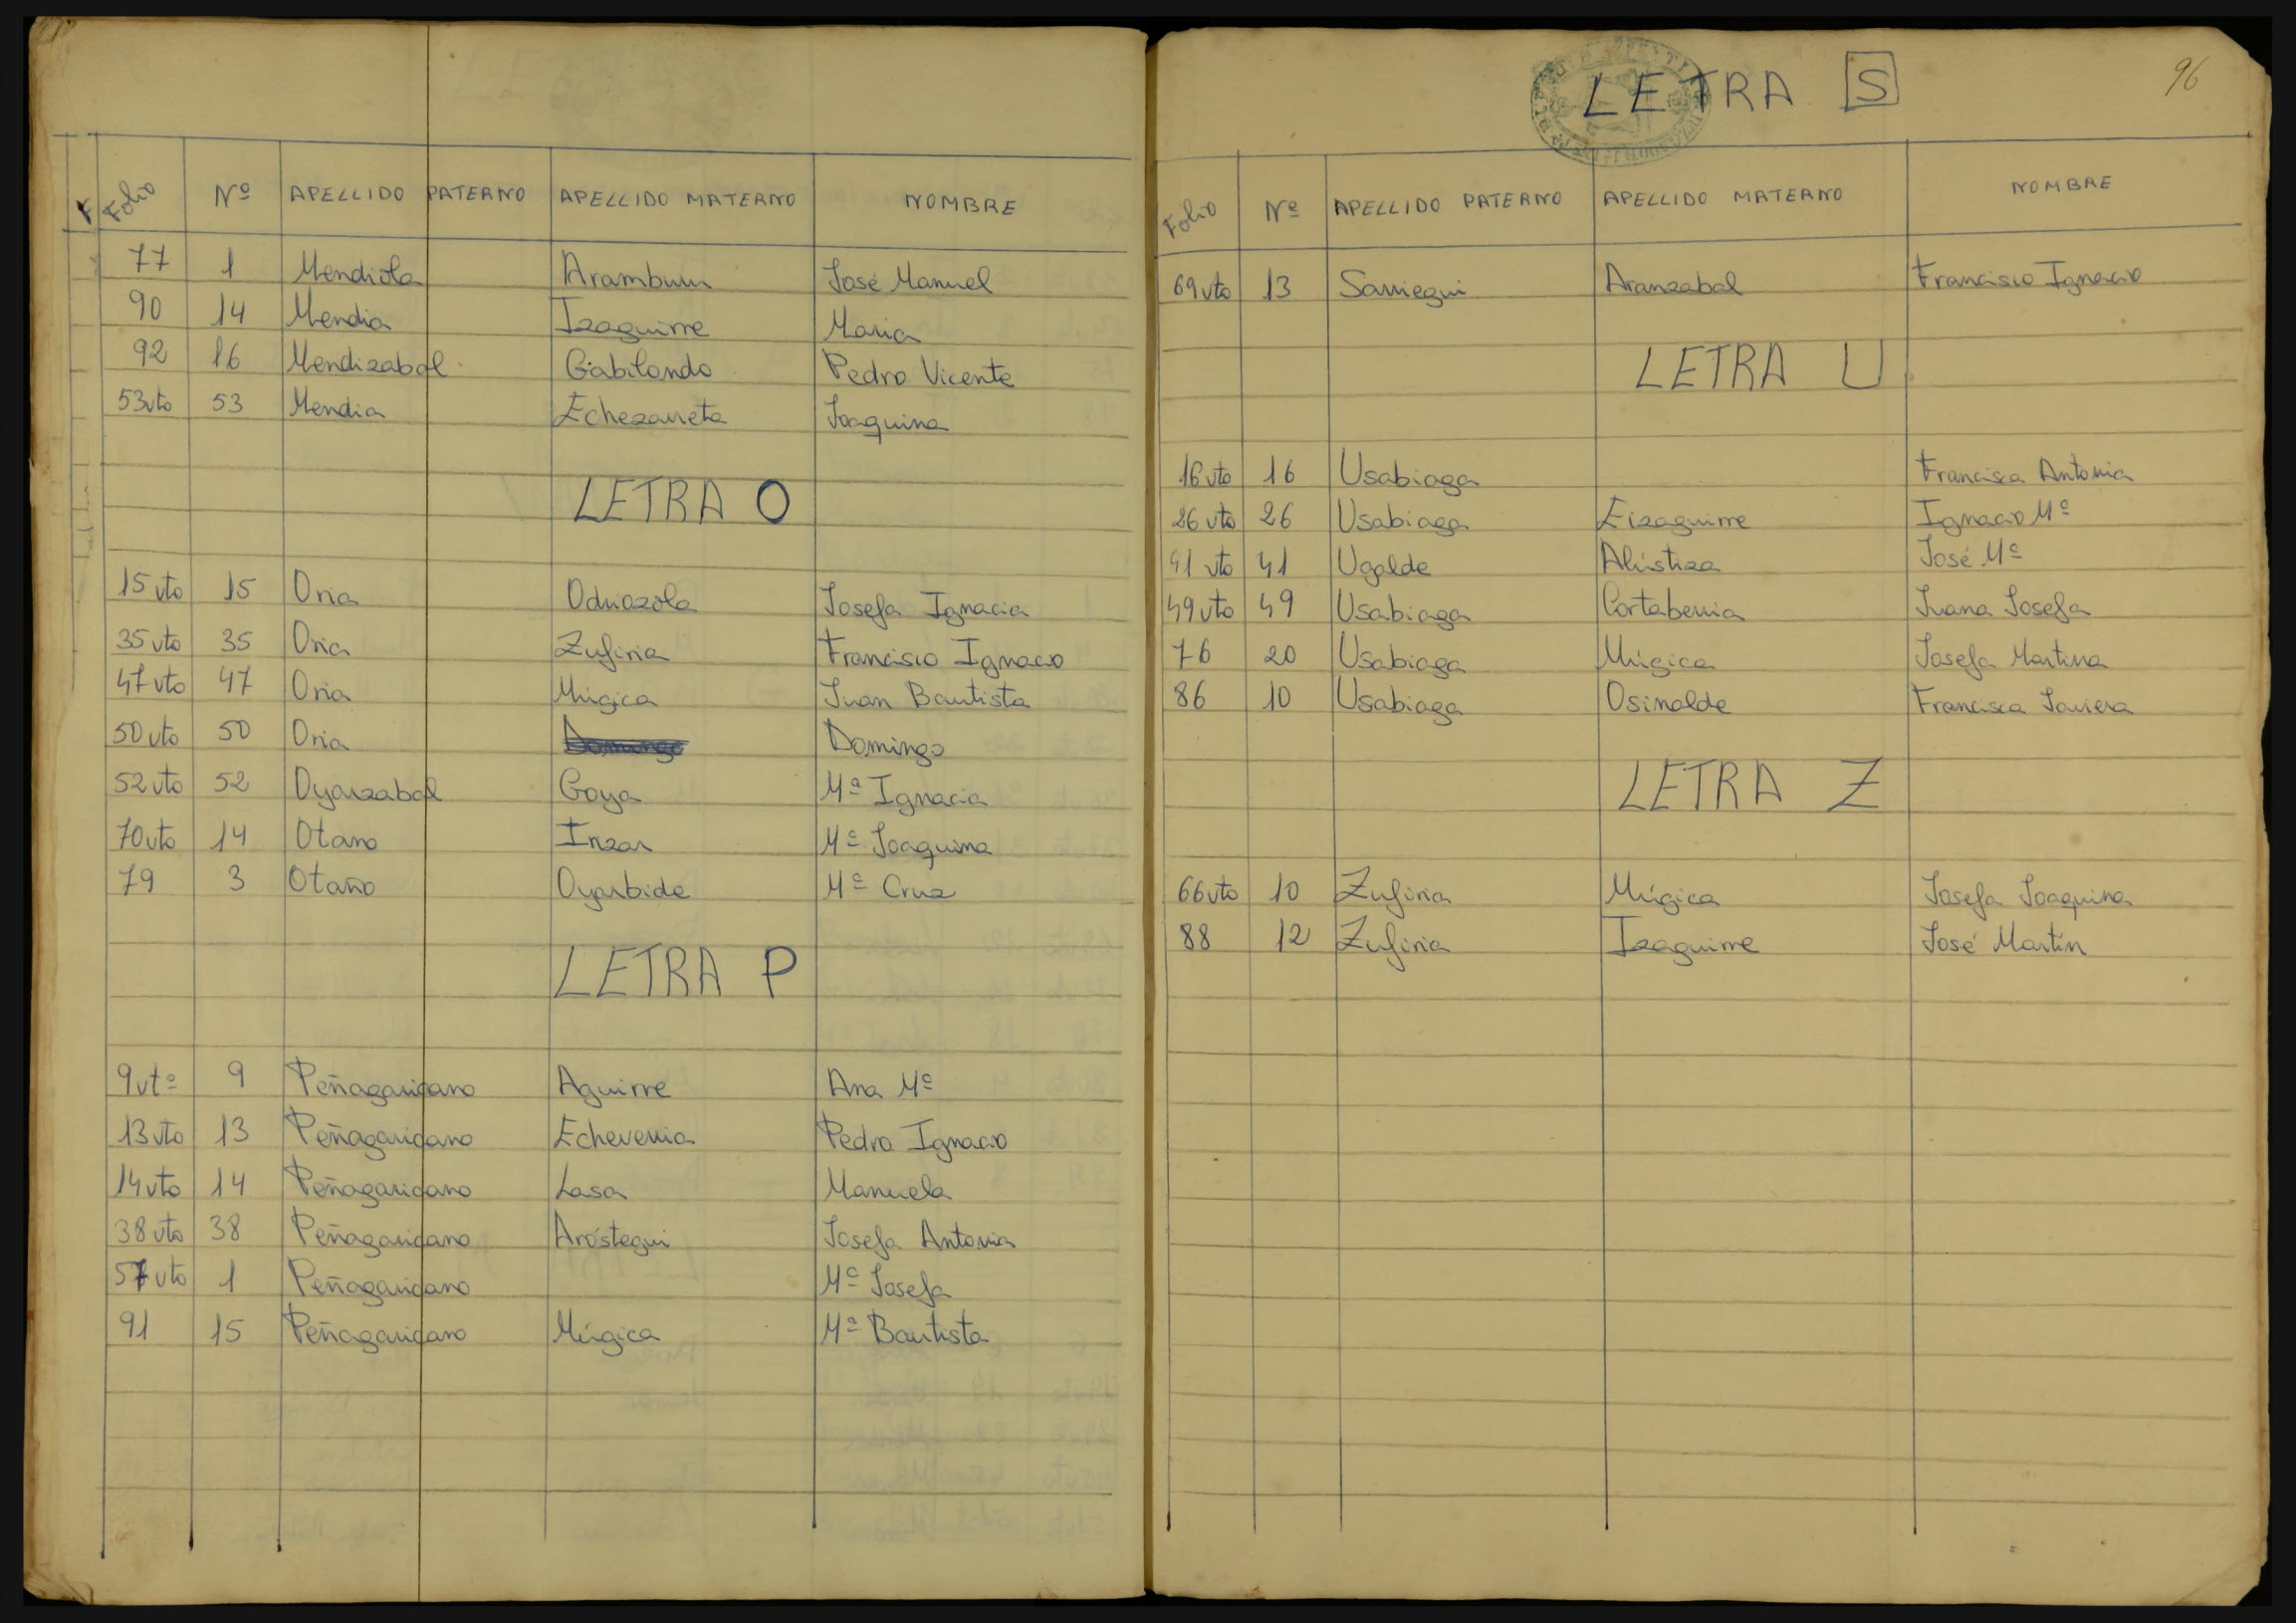 F Folio Nº APELLIDO PATERNO APELLIDO MATERNO NOMBRE
77 1 Mendiola Aramburu José Manuel
90 14 Mendia Izaguirre Maria
92 16 Mendizabal Gabilondo Pedro Vicente
53vto 53 Mendia Echezarreta Joaquina
LETRA O
15 vto 15 Oria Odriozola Josefa Ignacia
35 vto 35 Oria Zufiria Francisco Ignacio
47 vto 47 Oria Múgica Juan Bautista
50 vto 50 Oria Domingo Domingo
52 vto 52 Oyarzabal Goya Mª Ignacia
70 vto 14 Otano Inzar Mª Joaquina
79 3 Otaño Oyarbide Mª Cruz
LETRA P
9 vtº 9 Peñagaricano Aguirre Ana Mª
13 vto 13 Peñagaricano Echeverria Pedro Ignacio
14 vto 14 Peñagaricano Lasa Manuela
38 vto 38 Peñagaricano Aróstegui Josefa Antonia
57 vto 1 Peñagaricano Mª Josefa
91 15 Peñagaricano Múgica Mª Bautista
LETRA S
96
Folio Nº APELLIDO PATERNO APELLIDO MATERNO NOMBRE
69 vto 13 Sarriegui Aranzabal Francisco Ignacio
LETRA U
16 vto 16 Usabiaga Francisca Antonia
26 vto 26 Usabiaga Eizaguirre Ignacio Mª
41 vto 41 Ugalde Alústiza José Mª
49 vto 49 Usabiaga Cortaberria Juana Josefa
76 20 Usabiaga Múgica Josefa Martina
86 10 Usabiaga Osinalde Francisca Javiera
LETRA Z
66 vto 10 Zufiria Múgica Josefa Joaquina
88 12 Zufiria Izaguirre José Martín